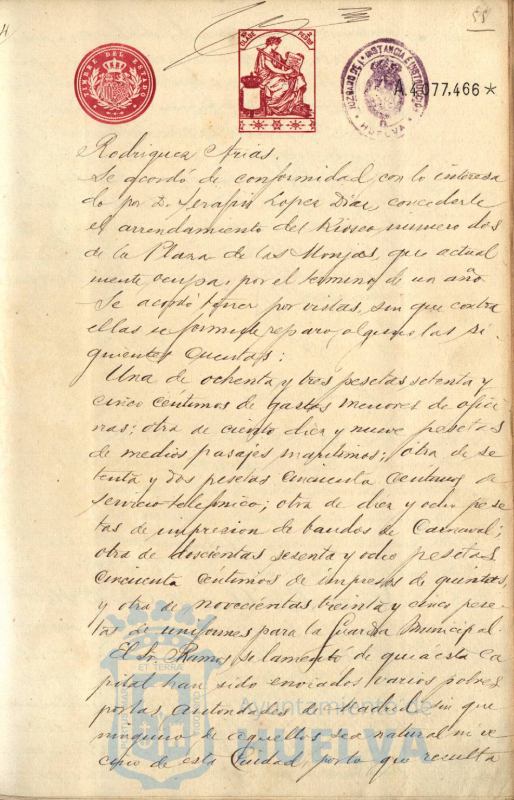 55
TIMBRE DEL ESTADO
CLASE PESETAS
JUZGADO DE 1ª INSTANCIA E INSTRUCCION
HUELVA
A.4.077,466*
Rodriguez Arias.
Se acordó de conformidad con lo interesa
do por D. Serapio Lopez Diaz, concederle
el arrendamiento del Kiosco número dos
de la Plaza de las Monjas, que actual
mente ocupa, por el termino de un año
Se acordó tener por vistas, sin que contra
ellas se formule reparo alguno las si
guientes cuentas:
Una de ochenta y tres pesetas setenta y
cinco céntimos de gastos menores de ofici
nas; otra de ciento diez y nueve pesetas
de medios pasajes maritimos; otra de se
tenta y dos pesetas cincuenta céntimos de
servicio telefonico; otra de diez y ocho pese
tas de impresion de bandos de Carnaval;
otra de doscientas sesenta y ocho pesetas
cincuenta centimos de impresos de quintas,
y otra de novecientas treinta y cinco pese
tas de uniformes para la Guardia Municipal.
El Sr. Ramos se lamentó de que á esta ca
pital han sido enviados varios pobres
por las autoridades de Madrid, sin que
ninguno de aquellos sea natural ni ve
cino de esta Ciudad, por lo que resulta
Ayuntamiento de
HUELVA